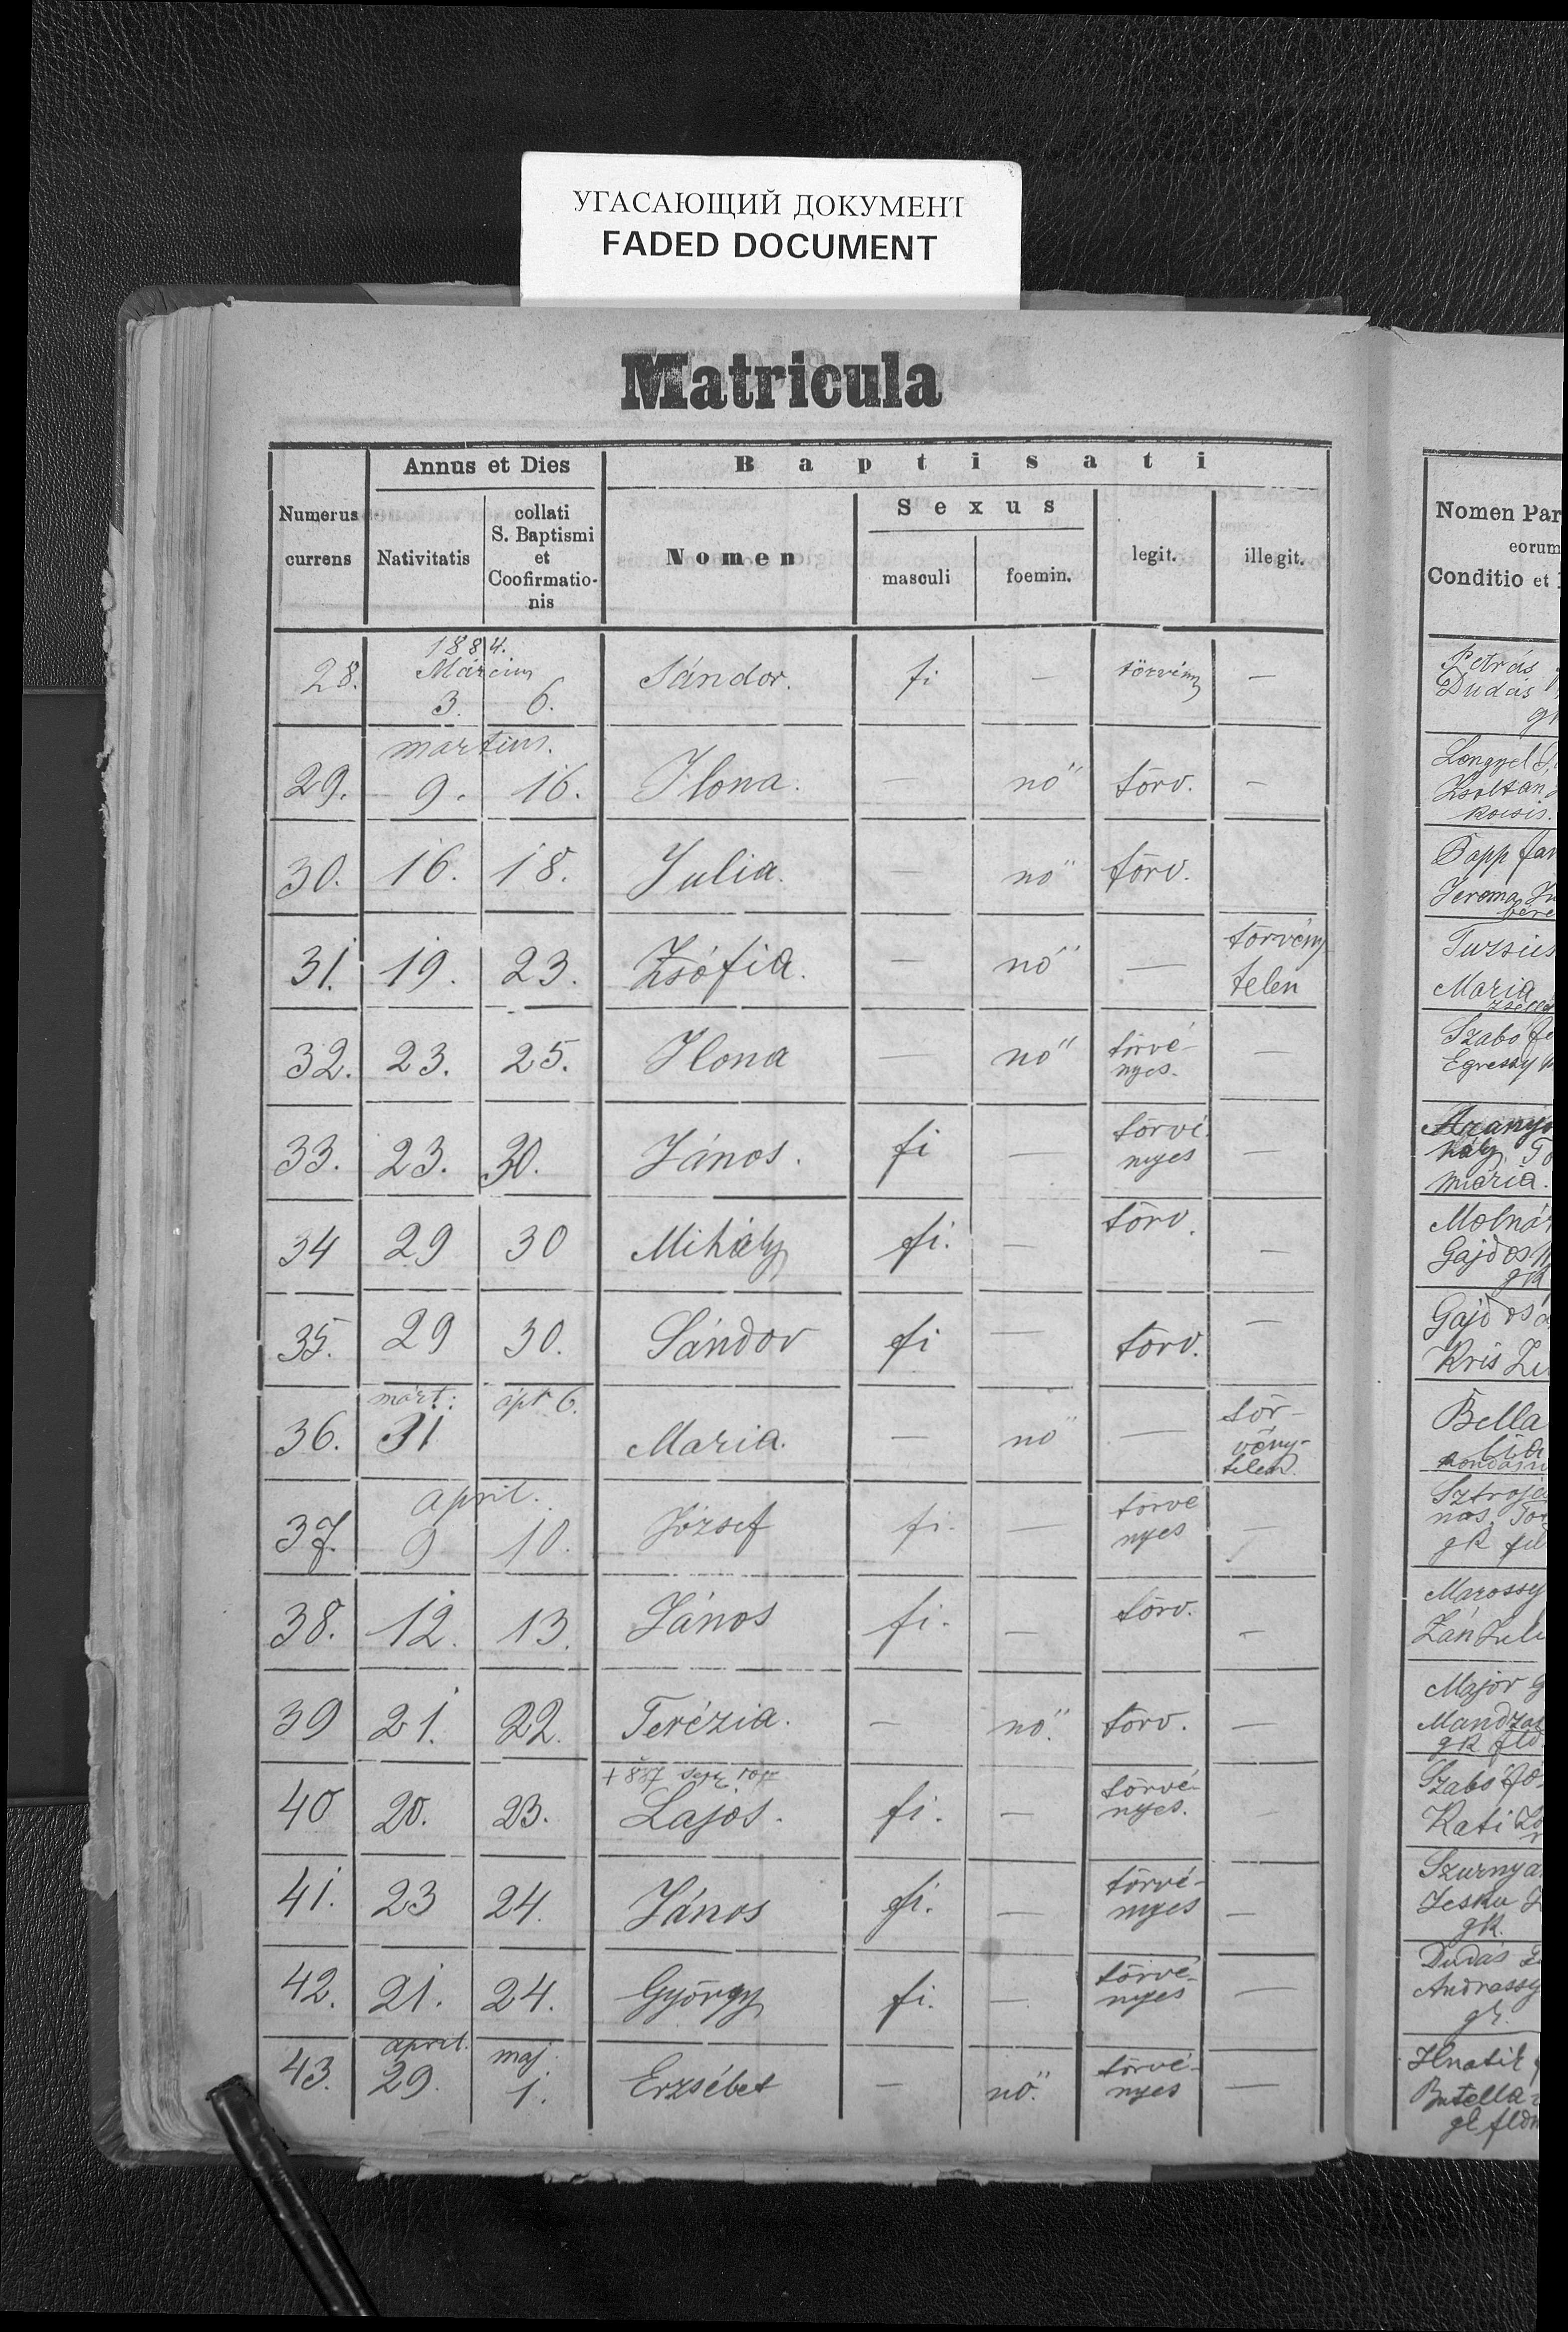 УГАСАЮЩИЙ ДОКУМЕНТ
FADED DOCUMENT
Matricula
Numerus currens
Annus et Dies
Nativitatis
collati S. Baptismi et Coofirmationis
Baptisati
Nomen
Sexus
masculi
foemin.
legit.
illegit.
Nomen Par
eorum
Conditio et
1884.
Március
28. 3. 6. Sándor. fi — törvény —
martius.
29. 9. 16. Ilona. — nő törv. —
30. 16. 18. Julia. — nő törv.
31. 19. 23. Zsófia. — nő — törvény
telen
32. 23. 25. Ilona — nő törvé-
nyes. —
33. 23. 30. János. fi — törvé
nyes —
34 29 30 Mihály fi. — törv. —
35. 29 30. Sándor fi — törv. —
márt. apr 6.
36. 31 Maria. — nő — tör-
vény-
telen.
april.
37. 9 10. József fi. — törve
nyes —
38. 12. 13. János fi. — törv. —
39 21. 22. Terézia. — nő. törv. —
40 20. 23. Lajos. fi. — törvé-
nyes. —
41. 23 24. János fi. — törvé-
nyes —
42. 21. 24. György fi. — törvé-
nyes —
april. maj
43. 29. 1. Erzsébet — nő. törvé-
nyes —
Petrás
Dudás
Lengyel
Zsoltan
kocsis.
Papp
Jeroma
Maria
Szabo
Egressy
Aranyo
hály
maria.
Molnár
Gajdos
gk
Gajdos
Kris
Bella
Sztroja
nos
gk
Marossy
Zán Juli
Major
Mandza
gk fld
Szabó
Kati
Szurnya
Jesku
gk.
Dudás
Andrassy
gk.
Hnatik
Butella
gk fldm